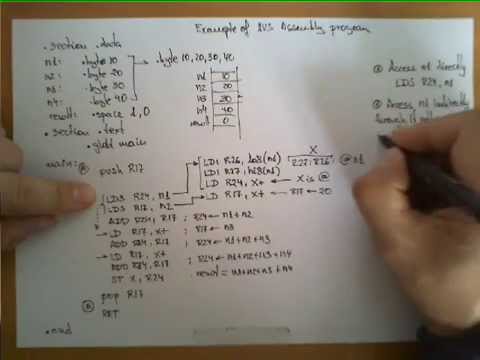 Example of AVS Assembly program
.section .data
n1: .byte 10
n2: .byte 20
n3: .byte 30
n4: .byte 40
result: .space 1,0
.section .text
.global main
.byte 10,20,30,40
n1 10
n2 20
n3 30
n4 40
result 0
main:
push R17
LDS R24, n1
LDS R17, n2
ADD R24, R17 ; R24 ← n1+n2
LD R17, X+ ; R17 ← n3
ADD R24, R17 ; R24 ← n1+n2+n3
LD R17, X+
ADD R24, R17 ; R24 ← n1+n2+n3+n4
ST X, R24 result = n1+n2+n3+n4
pop R17
RET
.end
LDI R26, lo8(n1)
LDI R27, hi8(n1)
LD R24, X+ ← X is @
LD R17, X+ ← R17 ← 20
X
R27:R26 @n1
Access n1 directly
LDS R24, n1
Access n1 indirectly
through